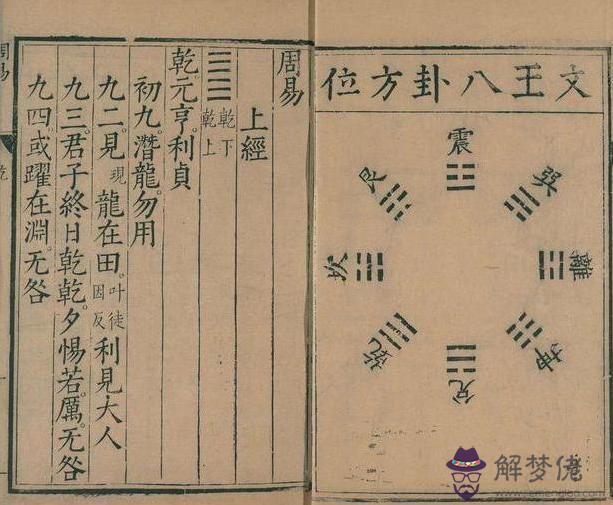 文王八卦方位
震
巽
離
坤
兌
乾
坎
艮
周易
上經
乾下
乾上
乾元亨。利貞
初九。潛龍。勿用
九二。見現龍在田。叶徒因反利見大人
九三。君子終日乾乾。夕惕若。厲。无咎
九四。或躍在淵。无咎
周易
乾
解梦佬